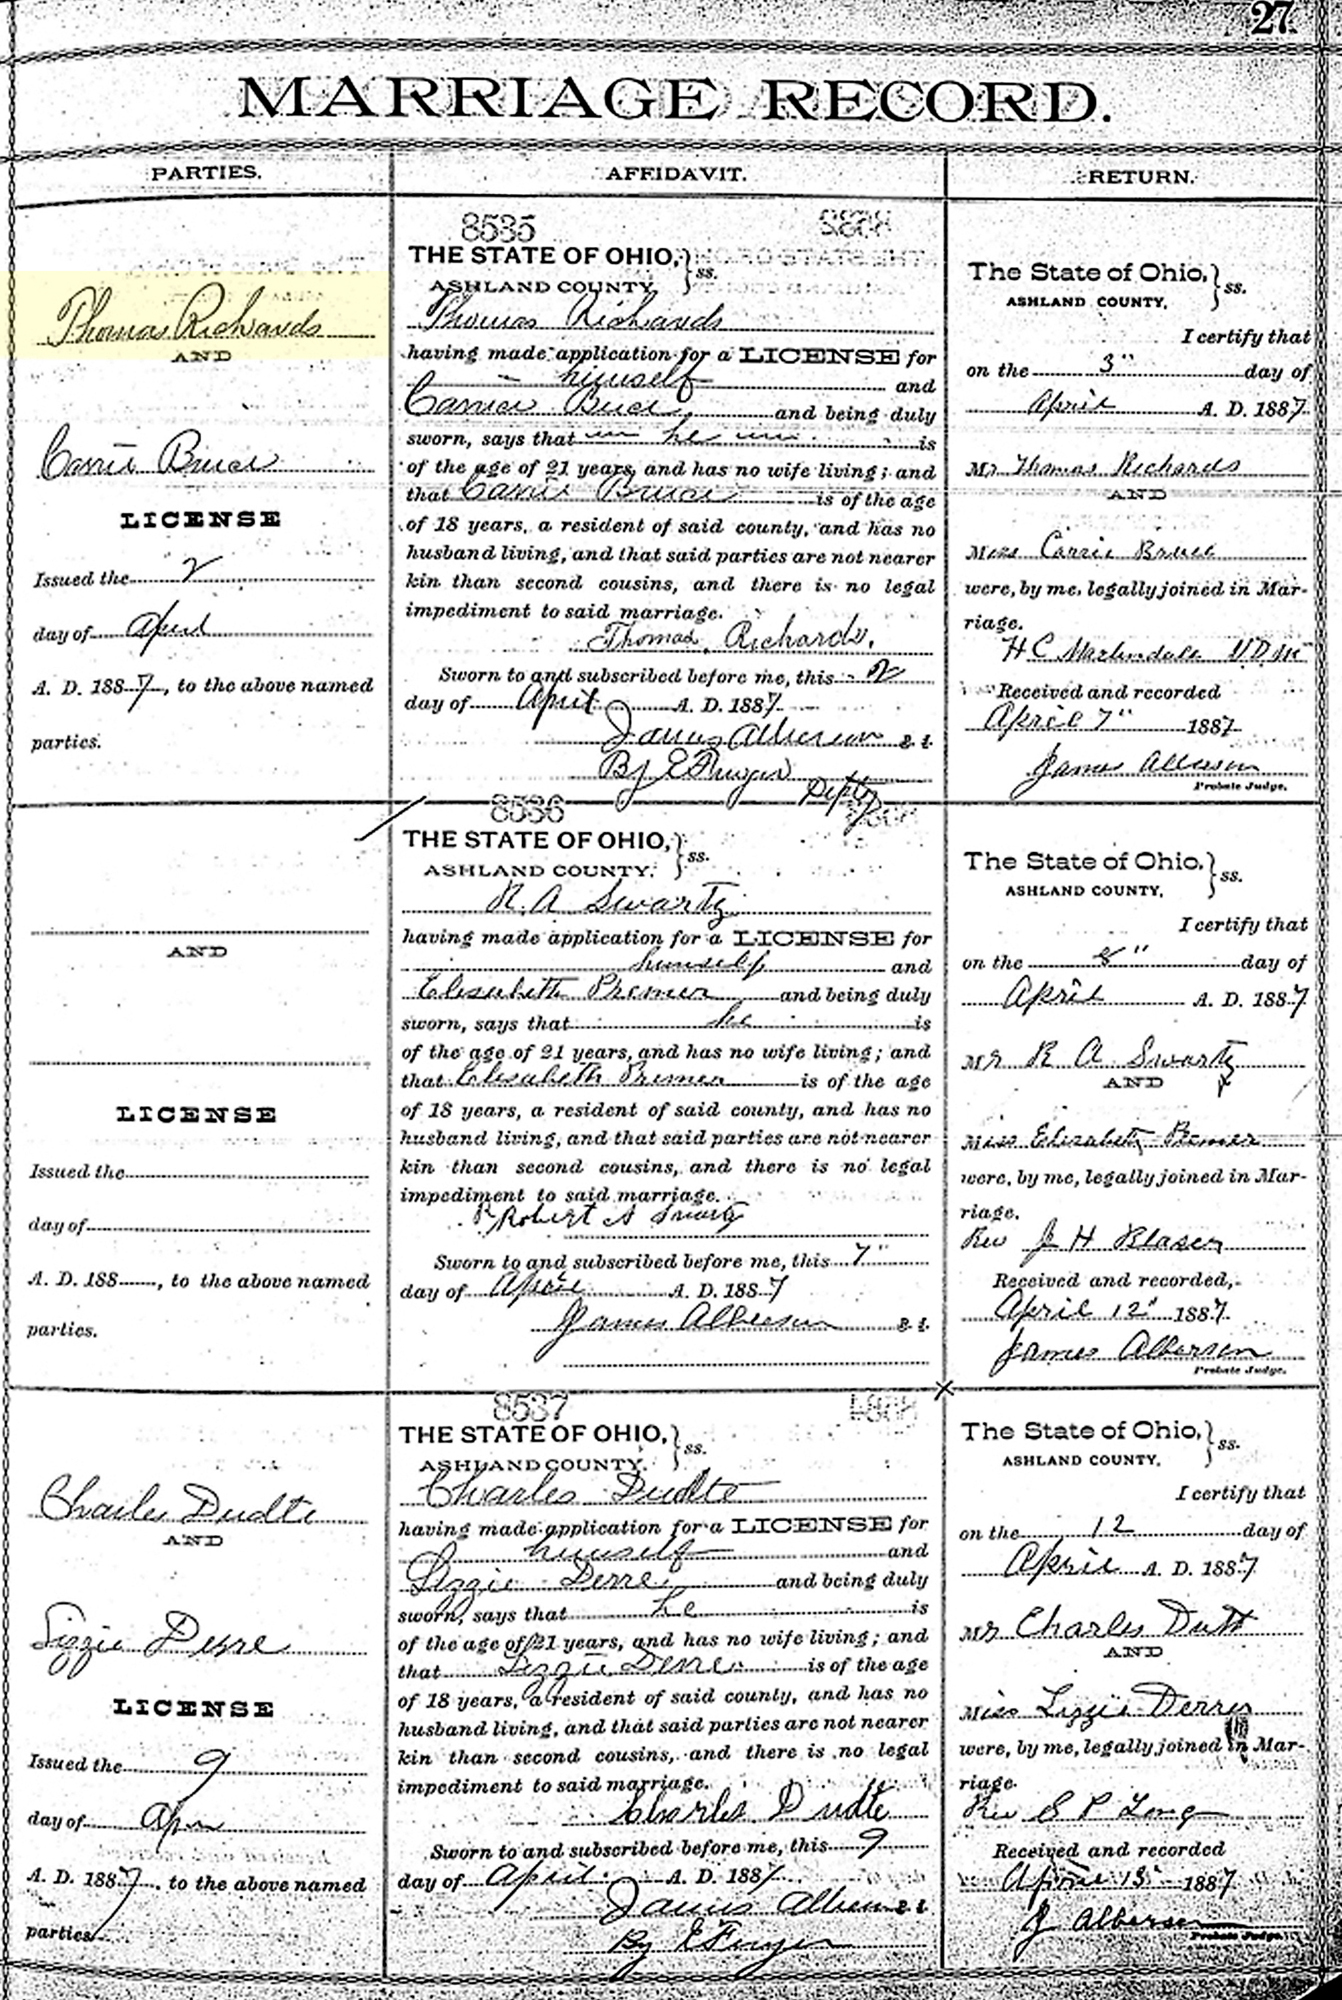 27
MARRIAGE RECORD.
PARTIES.
AFFIDAVIT.
RETURN.
Thomas Richards
AND
Carrie Bruce
LICENSE
Issued the 2
day of April
A. D. 1887, to the above named
parties.
8535
THE STATE OF OHIO, } ss.
ASHLAND COUNTY,
Thomas Richards
having made application for a LICENSE for
himself and
Carrie Bruce, and being duly
sworn, says that he is
of the age of 21 years, and has no wife living; and
that Carrie Bruce is of the age
of 18 years, a resident of said county, and has no
husband living, and that said parties are not nearer
kin than second cousins, and there is no legal
impediment to said marriage.
Thomas Richards.
Sworn to and subscribed before me, this 2
day of April A. D. 1887.
James Alberson P. J.
By E Finger
Dpty
The State of Ohio, } ss.
ASHLAND COUNTY,
I certify that
on the 3" day of
April A. D. 1887.
Mr Thomas Richards
AND
Miss Carrie Bruce
were, by me, legally joined in Mar-
riage.
H C Martindale V D M
Received and recorded
April 7" 1887.
James Alberson
Probate Judge.
AND
LICENSE
Issued the
day of
A. D. 188 , to the above named
parties.
8536
THE STATE OF OHIO, } ss.
ASHLAND COUNTY,
R. A Swartz
having made application for a LICENSE for
himself and
Elisabeth Bremer and being duly
sworn, says that he is
of the age of 21 years, and has no wife living; and
that Elisabeth Bremer is of the age
of 18 years, a resident of said county, and has no
husband living, and that said parties are not nearer
kin than second cousins, and there is no legal
impediment to said marriage.
Robert A Swartz
Sworn to and subscribed before me, this 7"
day of April A. D. 1887
James Alberson P. J.
The State of Ohio, } ss.
ASHLAND COUNTY,
I certify that
on the 8" day of
April A. D. 1887
Mr R A Swartz
AND
Miss Elizabeth Bemer
were, by me, legally joined in Mar-
riage.
Rev J H Blaser
Received and recorded,
April 12" 1887.
James Alberson
Probate Judge.
Charles Dudte
AND
Lizzie Derre
LICENSE
Issued the 9
day of Apr
A. D. 1887, to the above named
parties.
8537
THE STATE OF OHIO, } ss.
ASHLAND COUNTY,
Charles Dudte
having made application for a LICENSE for
himself and
Lizzie Derre, and being duly
sworn, says that he is
of the age of 21 years, and has no wife living; and
that Lizzie Derre is of the age
of 18 years, a resident of said county, and has no
husband living, and that said parties are not nearer
kin than second cousins, and there is no legal
impediment to said marriage.
Charles Dudte
Sworn to and subscribed before me, this 9
day of April A. D. 1887.
James Alberson P. J.
By E Finger
The State of Ohio, } ss.
ASHLAND COUNTY,
I certify that
on the 12 day of
April A. D. 1887
Mr Charles Dutt
AND
Miss Lizzie Derrer
were, by me, legally joined in Mar-
riage.
Rev S P Long
Received and recorded
April 13" 1887
J Alberson
Probate Judge.